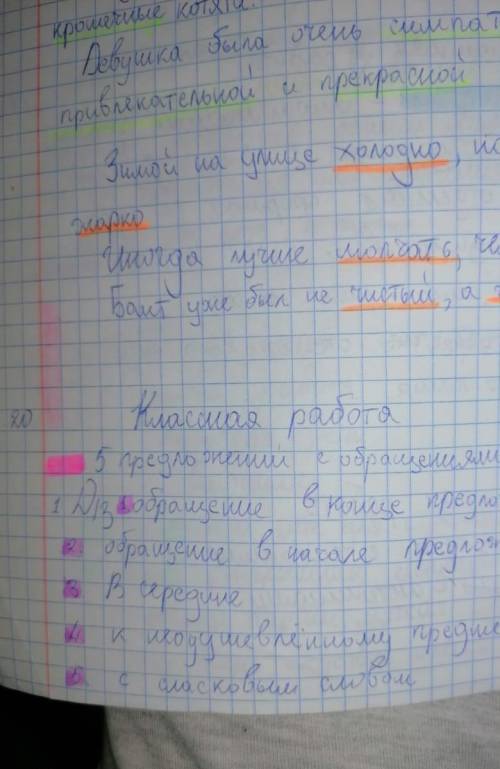 крошечные котята.
Девушка была очень симпат
привлекательной и прекрасной
Зимой на улице холодно,
жарко
Иногда лучше молчать, че
Бант уже был не чистый, а
20 Классная работа
5 предложений с обращениями
1 Д/з обращение в конце предло
2. обращение в начале предлож
3 В середине
4 к неодушевлённому предме
5 с ласковым словом